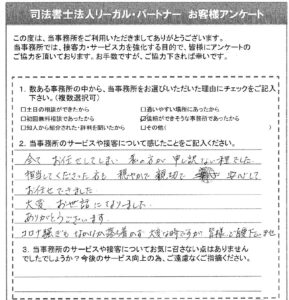 司法書士法人リーガル・パートナー お客様アンケート
この度は、当事務所をご利用いただきましてありがとうございます。
当事務所では、接客力・サービス力を強化する目的で、皆様にアンケートの
ご協力を頂いております。お手数ですが、ご協力下されば幸いです。
1. 数ある事務所の中から、当事務所をお選びいただいた理由にチェックをご記入
下さい。(複数選択可)
□土日の相談ができたから □通いやすい場所にあったから
□初回無料相談であったから ☑価格ができそうな事務所であったから
□知人から紹介された・評判を聞いたから □その他( )
2. 当事務所のサービスや接客について感じたことをご記入ください。
全て お任せしてしまい 私の方が 申し訳ない程でした。
担当してくださった方も 穏やかで 親切で 安心して
お任せできました
大変 お世話になりました。
ありがとうございます。
コロナ騒ぎもなかなか落ち着かず 大変な時ですが 皆様ご健康で
3. 当事務所のサービスや接客についてお気に召さない点はありません
でしたでしょうか?今後のサービス向上の為、ご遠慮なくご指摘ください。